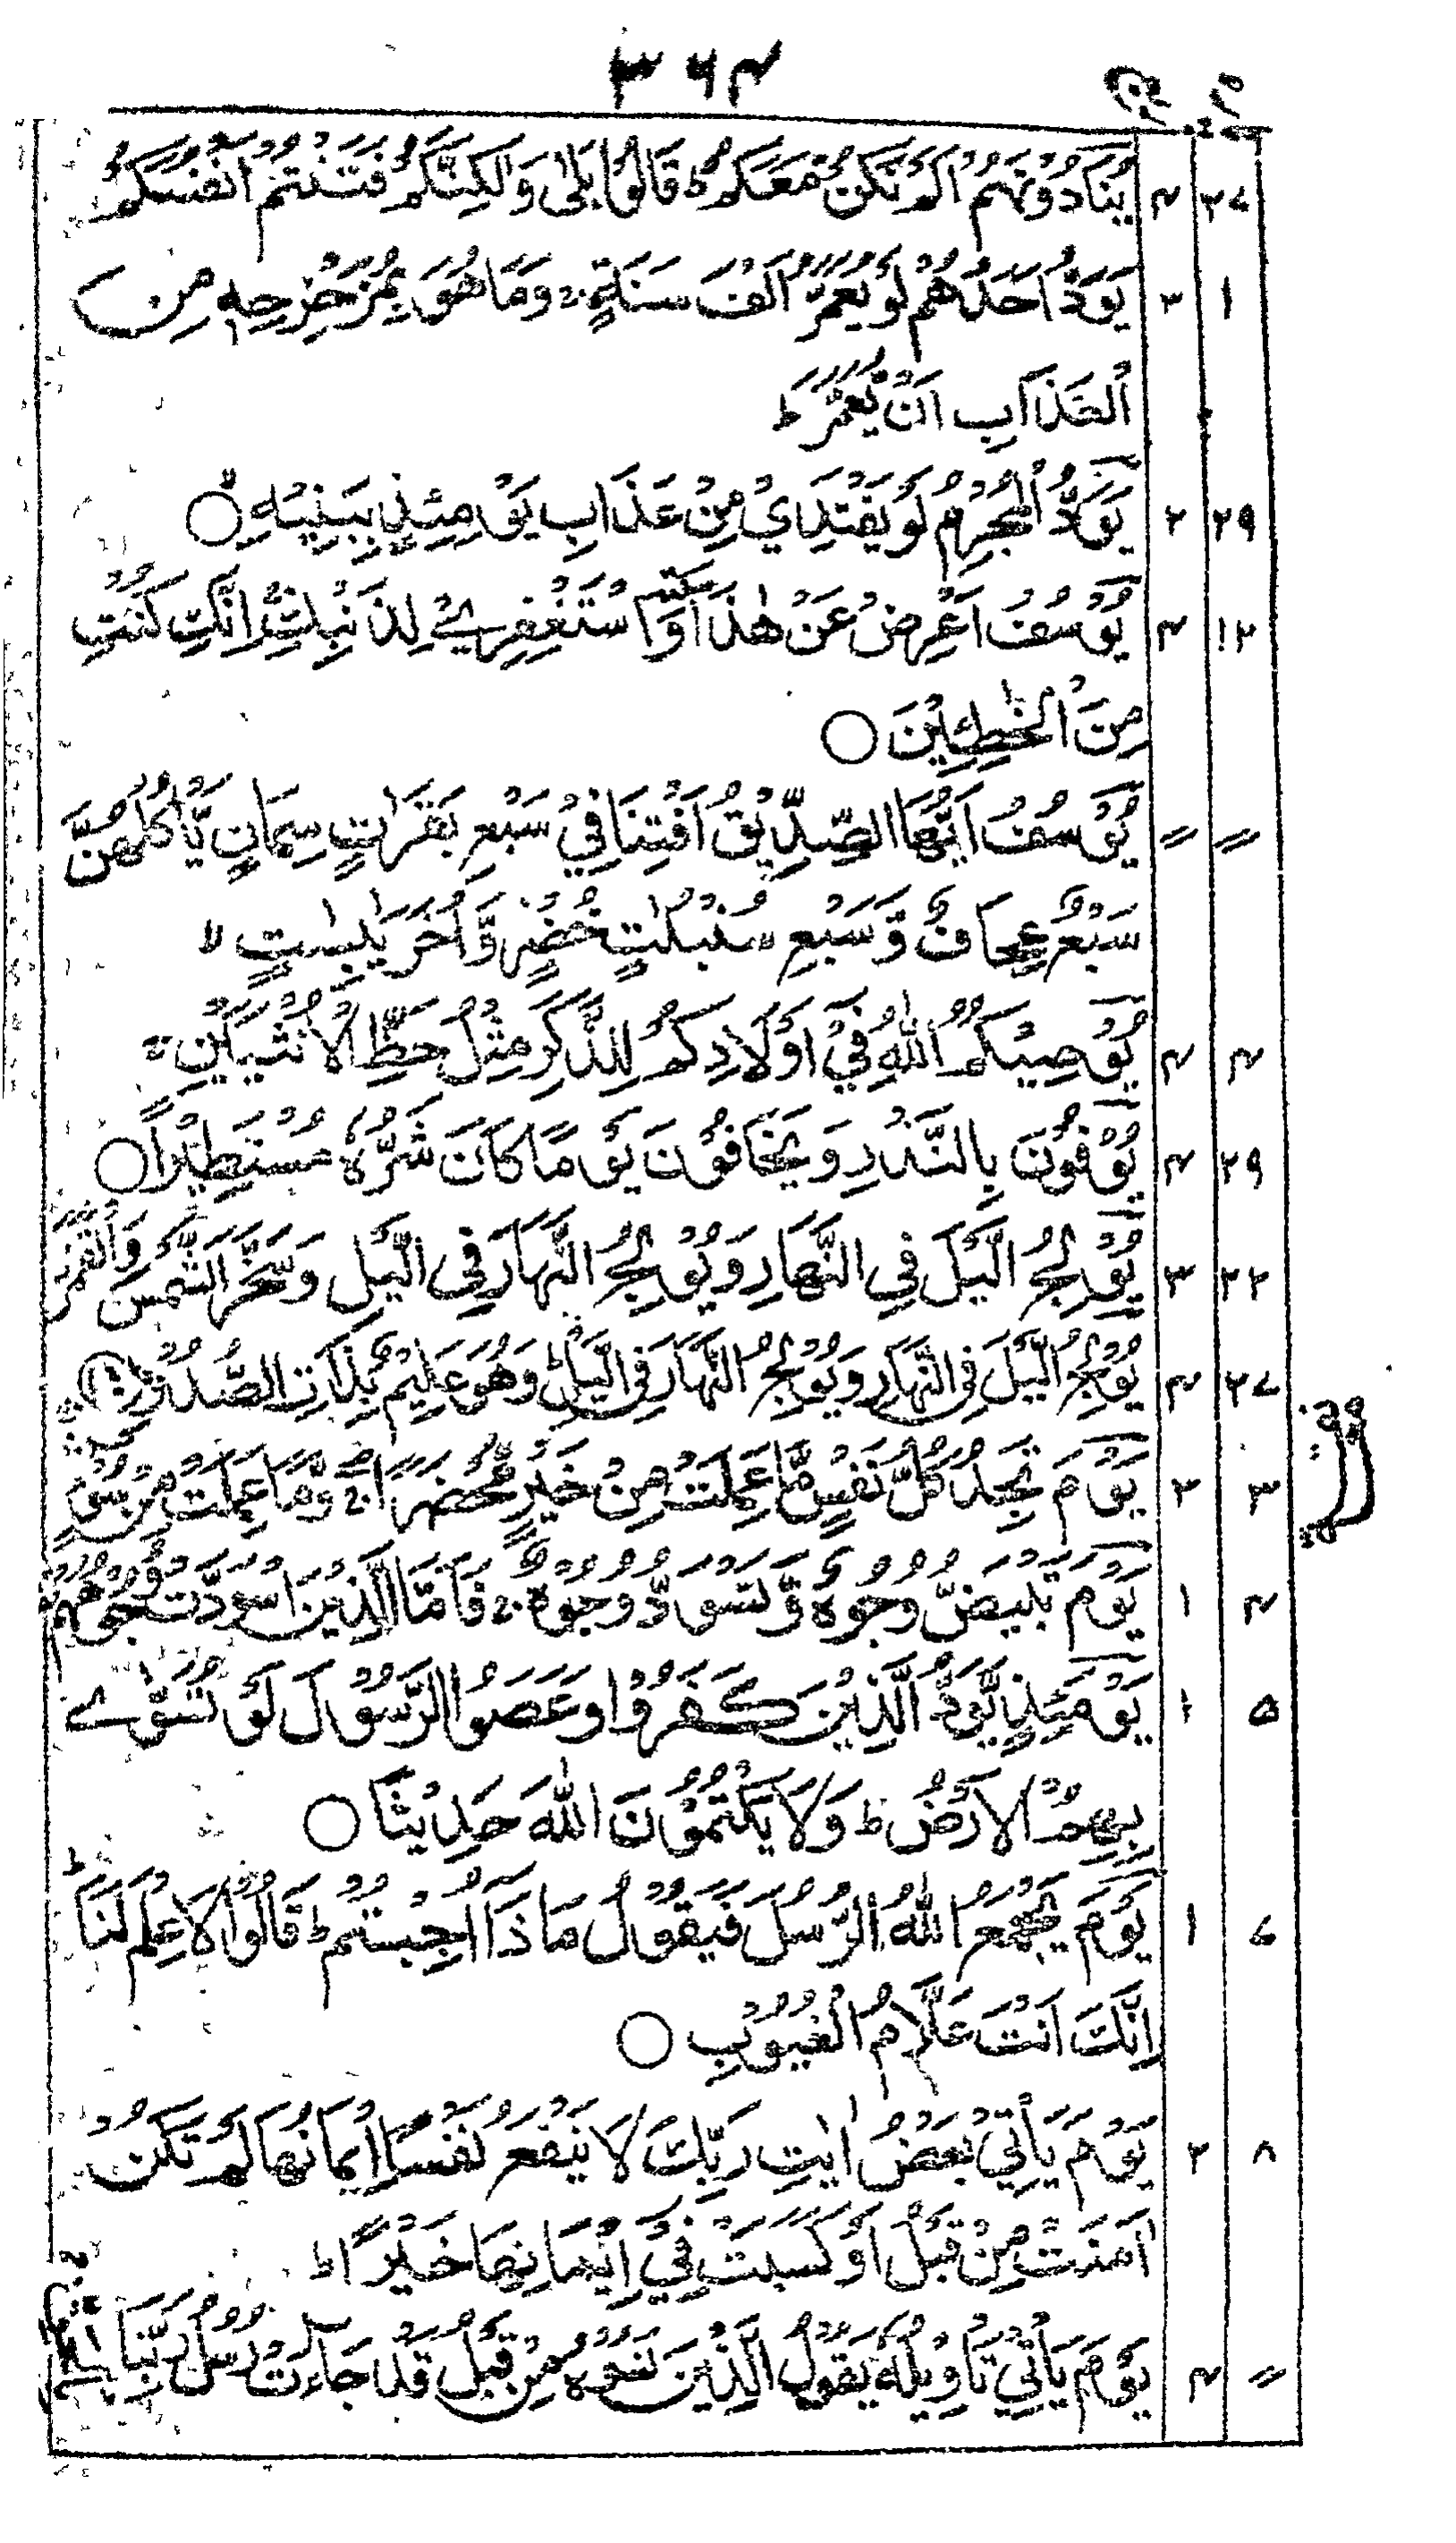 ۳۶۴
۲۷ ۴ يُنَادُوْنَهُمْ اَلَمْ نَكُنْ مَّعَكُمْ ؕ قَالُوْا بَلٰى وَلٰكِنَّكُمْ فَتَنْتُمْ اَنْفُسَكُمْ
۱ ۳ يَوَدُّ اَحَدُهُمْ لَوْ يُعَمَّرُ اَلْفَ سَنَةٍ ۚ وَمَا هُوَ بِمُزَحْزِحِهٖ مِنَ
الْعَذَابِ اَنْ يُّعَمَّرَ ؕ
۲۹ ۲ يَوَدُّ الْمُجْرِمُ لَوْ يَفْتَدِيْ مِنْ عَذَابِ يَوْمِئِذٍۭ بِبَنِيْهِ ۙ○
۱۲ ۴ يُوْسُفُ اَعْرِضْ عَنْ هٰذَا وَاسْتَغْفِرِيْ لِذَنْۢبِكِ ۚ اِنَّكِ كُنْتِ
مِنَ الْخٰطِـِٕيْنَ ○
〃 〃 يُوْسُفُ اَيُّهَا الصِّدِّيْقُ اَفْتِنَا فِيْ سَبْعِ بَقَرٰتٍ سِمَانٍ يَّاْكُلُهُنَّ
سَبْعٌ عِجَافٌ وَّسَبْعِ سُنْۢبُلٰتٍ خُضْرٍ وَّاُخَرَ يٰبِسٰتٍ ۙ
۴ ۴ يُوْصِيْكُمُ اللّٰهُ فِيْٓ اَوْلَادِكُمْ لِلذَّكَرِ مِثْلُ حَظِّ الْاُنْثَيَيْنِ ۚ
۲۹ ۴ يُوْفُوْنَ بِالنَّذْرِ وَيَخَافُوْنَ يَوْمًا كَانَ شَرُّهٗ مُسْتَطِيْرًا ○
۲۲ ۳ يُوْلِجُ الَّيْلَ فِي النَّهَارِ وَيُوْلِجُ النَّهَارَ فِي الَّيْلِ وَسَخَّرَ الشَّمْسَ وَالْقَمَرَ
۲۷ ۴ يُوْلِجُ الَّيْلَ فِي النَّهَارِ وَيُوْلِجُ النَّهَارَ فِي الَّيْلِ ؕ وَهُوَ عَلِيْمٌۢ بِذَاتِ الصُّدُوْرِ ○
۳ ۲ يَوْمَ تَجِدُ كُلُّ نَفْسٍ مَّا عَمِلَتْ مِنْ خَيْرٍ مُّحْضَرًا ۚ وَّمَا عَمِلَتْ مِنْ سُوْٓءٍ
۴ ۱ يَوْمَ تَبْيَضُّ وُجُوْهٌ وَّتَسْوَدُّ وُجُوْهٌ ۚ فَاَمَّا الَّذِيْنَ اسْوَدَّتْ وُجُوْهُهُمْ
۵ ۱ يَوْمَئِذٍ يَّوَدُّ الَّذِيْنَ كَفَرُوْا وَعَصَوُا الرَّسُوْلَ لَوْ تُسَوّٰى
بِهِمُ الْاَرْضُ ؕ وَلَا يَكْتُمُوْنَ اللّٰهَ حَدِيْثًا ○
۷ ۱ يَوْمَ يَجْمَعُ اللّٰهُ الرُّسُلَ فَيَقُوْلُ مَاذَآ اُجِبْتُمْ ؕ قَالُوْا لَا عِلْمَ لَنَا ؕ
اِنَّكَ اَنْتَ عَلَّامُ الْغُيُوْبِ ○
۸ ۲ يَوْمَ يَاْتِيْ بَعْضُ اٰيٰتِ رَبِّكَ لَا يَنْفَعُ نَفْسًا اِيْمَانُهَا لَمْ تَكُنْ
اٰمَنَتْ مِنْ قَبْلُ اَوْ كَسَبَتْ فِيْٓ اِيْمَانِهَا خَيْرًا ؕ
〃 ۴ يَوْمَ يَاْتِيْ تَاْوِيْلُهٗ يَقُوْلُ الَّذِيْنَ نَسُوْهُ مِنْ قَبْلُ قَدْ جَآءَتْ رُسُلُ رَبِّنَا بِالْحَقِّ